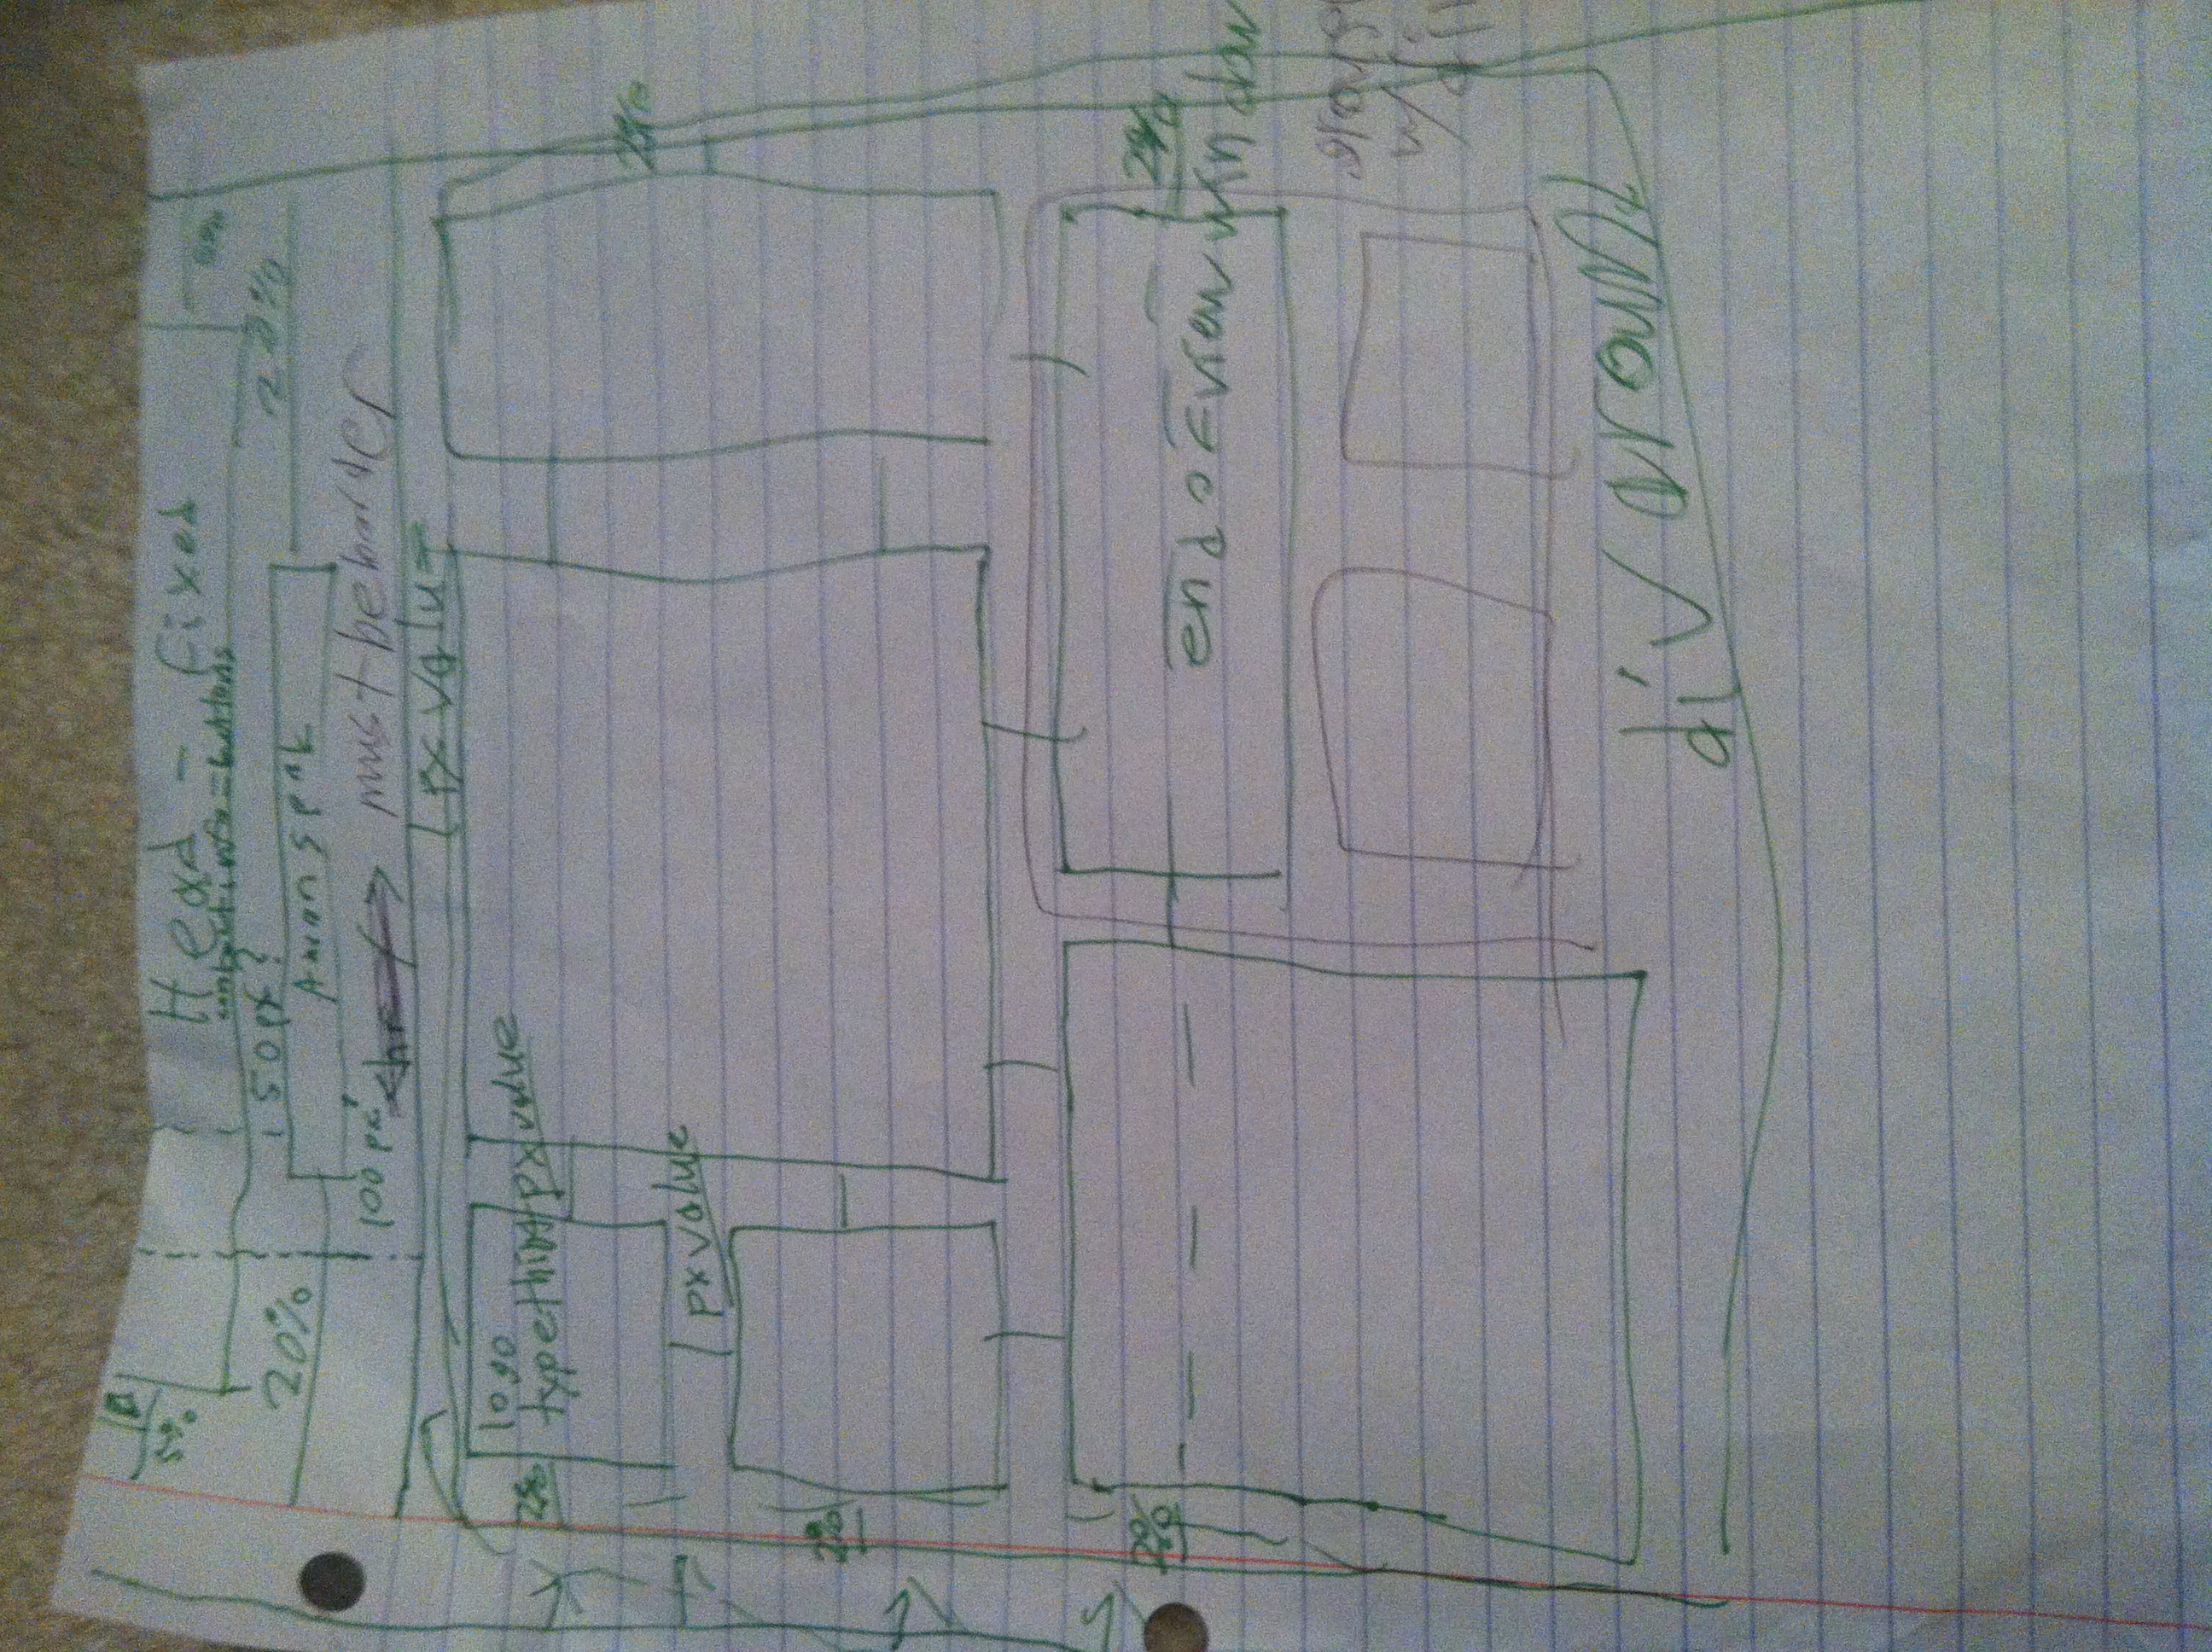 5%
Head - fixed
contact info = buttons
20%
50px?
20%
100px
<hr />
must be border
px value
2%
logo
typething
px value
px value
2%
2%
2%
2%
end of view window
w/
div around